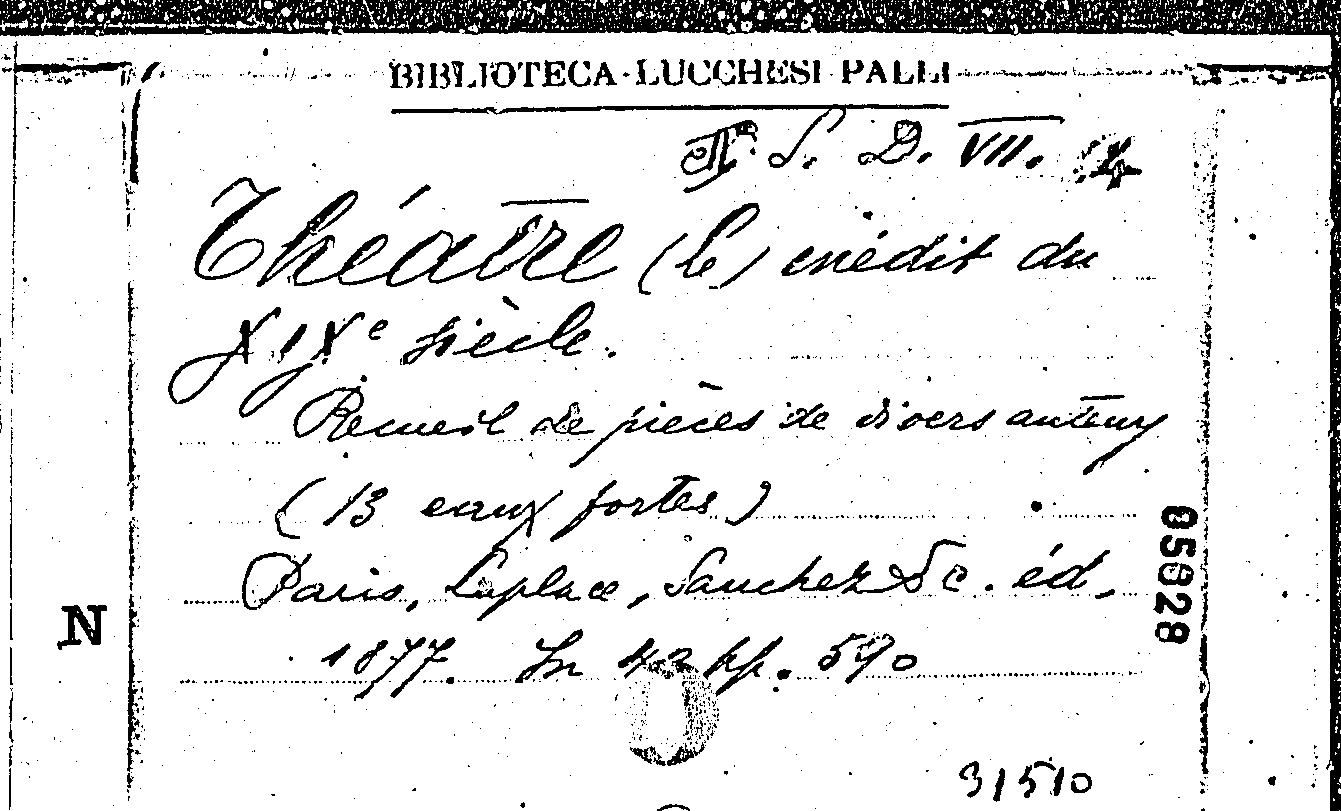 BIBLIOTECA LUCCHESI PALLI
S. D. VII.
Théâtre (le) inédit du
XIXe siècle.
Recueil de pièces de divers auteurs
(13 eaux fortes)
Paris, Laplace, Sanchez & C. éd.
1877. In pp. 590
N
05928
31510